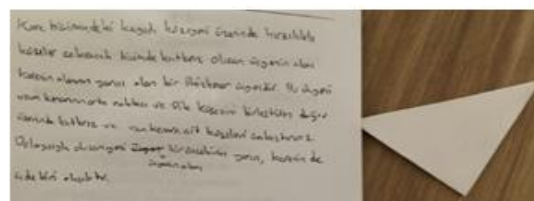 Kare biçimindeki kağıdı köşegeni üzerinde karşılıklı
köşeler çakışacak biçimde katlarız oluşan üçgenin alanı
karenin alanının yarısı olan bir ikizkenar üçgendir. Bu üçgeni
uzun kenarının orta noktası ve dik köşesini birleştiren doğru
üzerinde katlarız ve uzun kenara ait köşeleri çakıştırırız.
Dolayısıyla oluşan yeni üçgenin alanı yarısı, karenin de
olabilir.